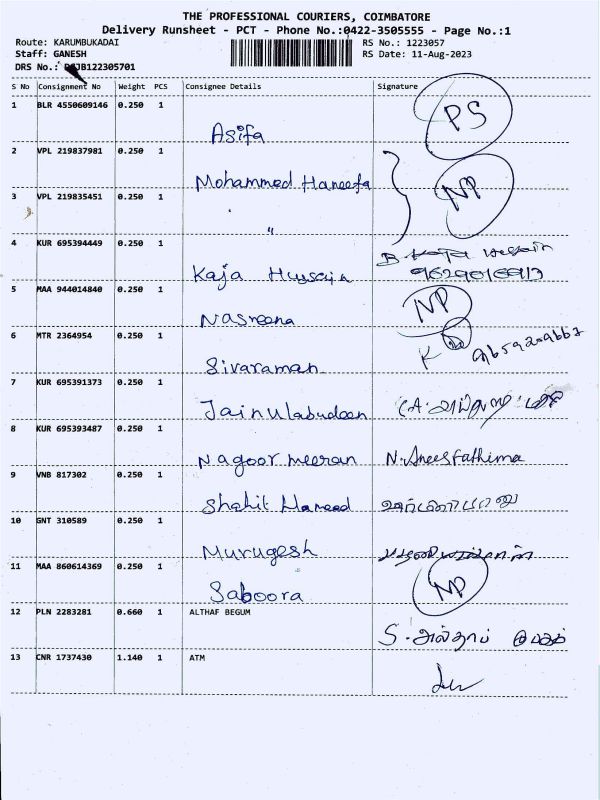 THE PROFESSIONAL COURIERS, COIMBATORE
Delivery Runsheet - PCT - Phone No.:0422-3505555 - Page No.:1
Route: KARUMBUKADAI RS No.: 1223057
Staff: GANESH RS Date: 11-Aug-2023
DRS No.:
S No Consignment No Weight PCS Consignee Details Signature
1 BLR 4550609146 0.250 1 PS
Asifa
2 VPL 219837981 0.250 1
Mohammed Haneefa NP
3 VPL 219835451 0.250 1
"
4 KUR 695394449 0.250 1
Kaja Hussain
5 MAA 944014840 0.250 1 NP
Nasreena
6 MTR 2364954 0.250 1 K
Sivaraman
7 KUR 695391373 0.250 1
Jainulabudeen
8 KUR 695393487 0.250 1
Nagoor meeran N. Aneesfathima
9 VNB 817302 0.250 1
Shahil Hameed
10 GNT 310589 0.250 1
Murugesh
11 MAA 860614369 0.250 1 NP
Saboora
12 PLN 2283281 0.660 1 ALTHAF BEGUM
13 CNR 1737430 1.140 1 ATM